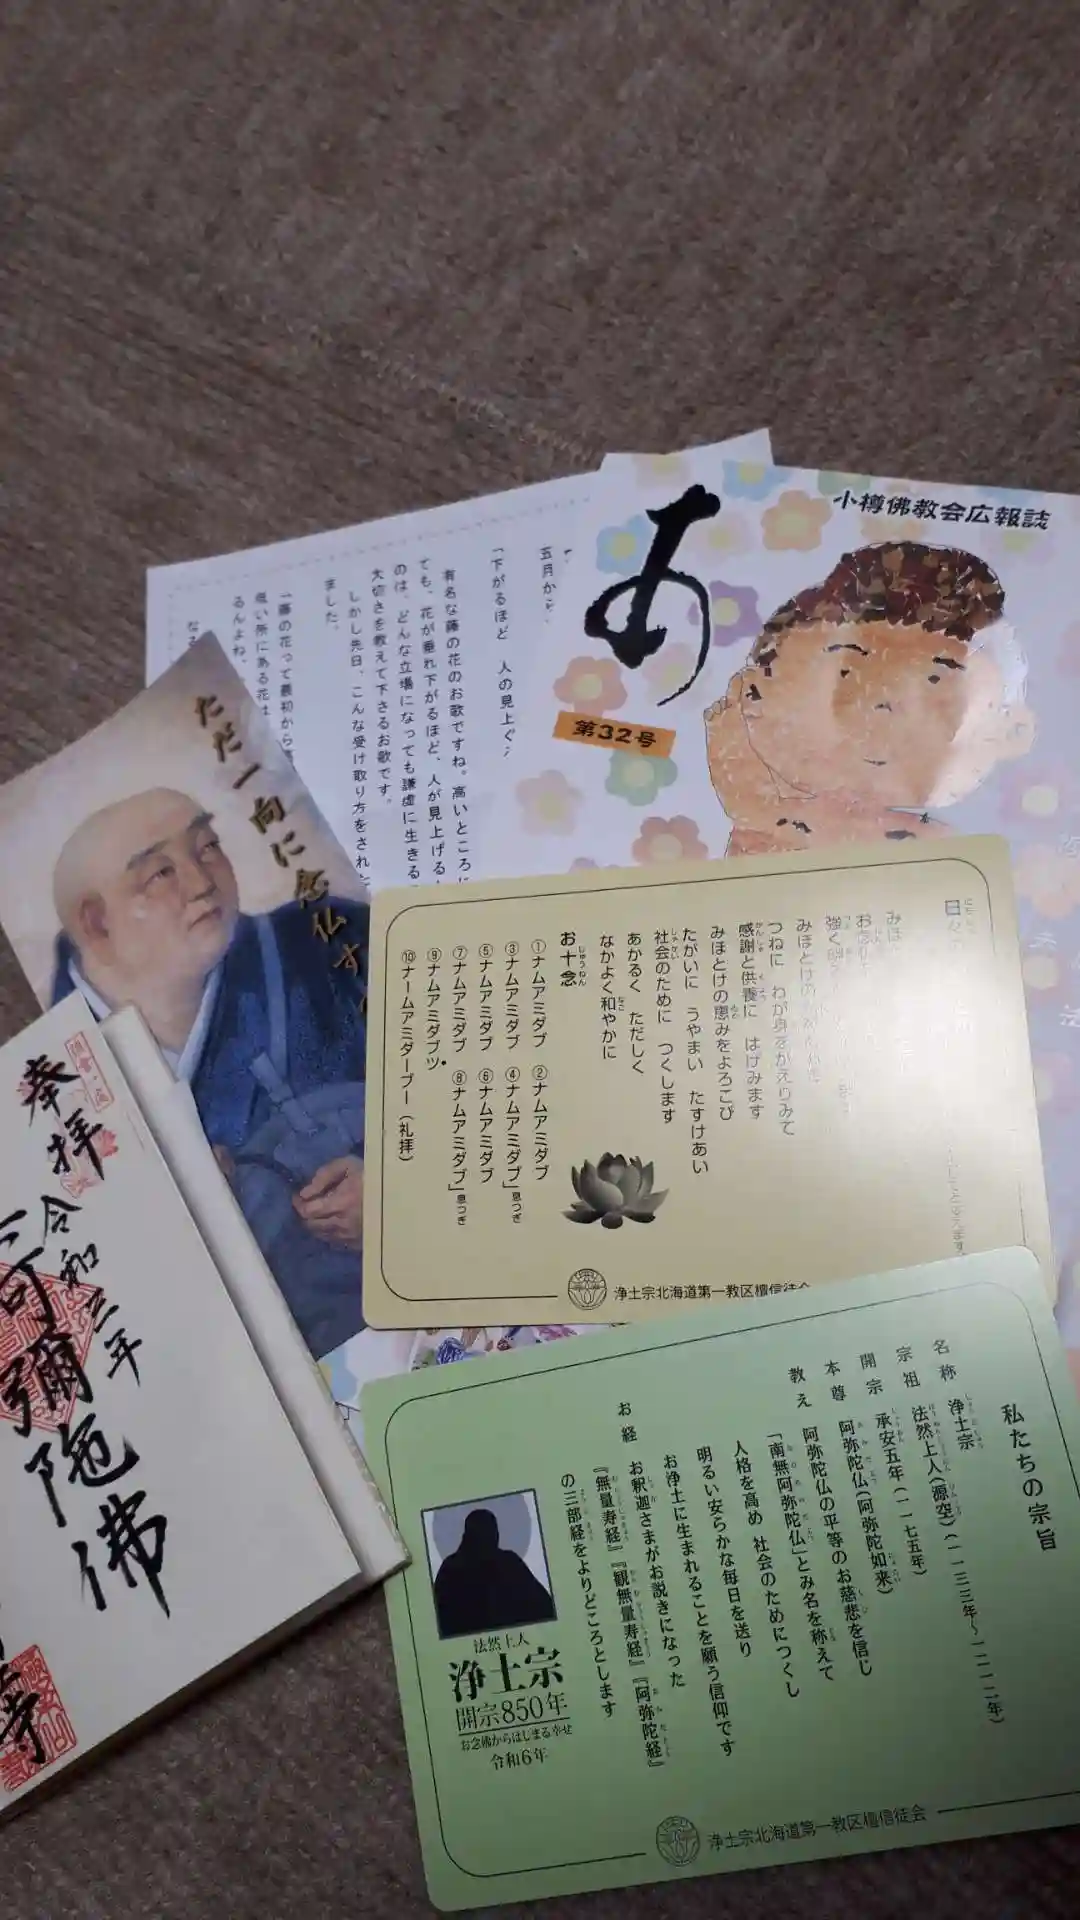 小樽佛教会広報誌
あ
第32号
五月から
「下がるほど 人の見上ぐ
有名な藤の花のお歌ですね。高いところに
ても、花が垂れ下がるほど、人が見上げる
のは、どんな立場になっても謙虚に生きる
大切さを教えて下さるお歌です。
しかし先日、こんな受け取り方をされた
ました。
「藤の花って最初から
低い所にある花は
るんよね、
ただ一向に念仏す
奉拝
令和三年
阿彌陀佛
寺
日々
つねに わが身をかえりみて
感謝と供養に はげみます
みほとけの恵みをよろこび
たがいに うやまい たすけあい
社会のために つくします
あかるく ただしく
なかよく和やかに
お十念
①ナムアミダブ ②ナムアミダブ
③ナムアミダブ ④ナムアミダブ」息つぎ
⑤ナムアミダブ ⑥ナムアミダブ
⑦ナムアミダブ ⑧ナムアミダブ」息つぎ
⑨ナムアミダブツ
⑩ナームアミダーブー(礼拝)
浄土宗北海道第一教区檀信徒会
私たちの宗旨
名称 浄土宗
宗祖 法然上人(源空)(一一三三年~一二一二年)
開宗 承安五年(一一七五年)
本尊 阿弥陀仏(阿弥陀如来)
教え 阿弥陀仏の平等のお慈悲を信じ
「南無阿弥陀仏」とみ名を称えて
人格を高め 社会のためにつくし
明るい安らかな毎日を送り
お浄土に生まれることを願う信仰です
お経 お釈迦さまがお説きになった
『無量寿経』『観無量寿経』『阿弥陀経』
の三部経をよりどころとします
法然上人
浄土宗
開宗850年
お念佛からはじまる幸せ
令和6年
浄土宗北海道第一教区檀信徒会